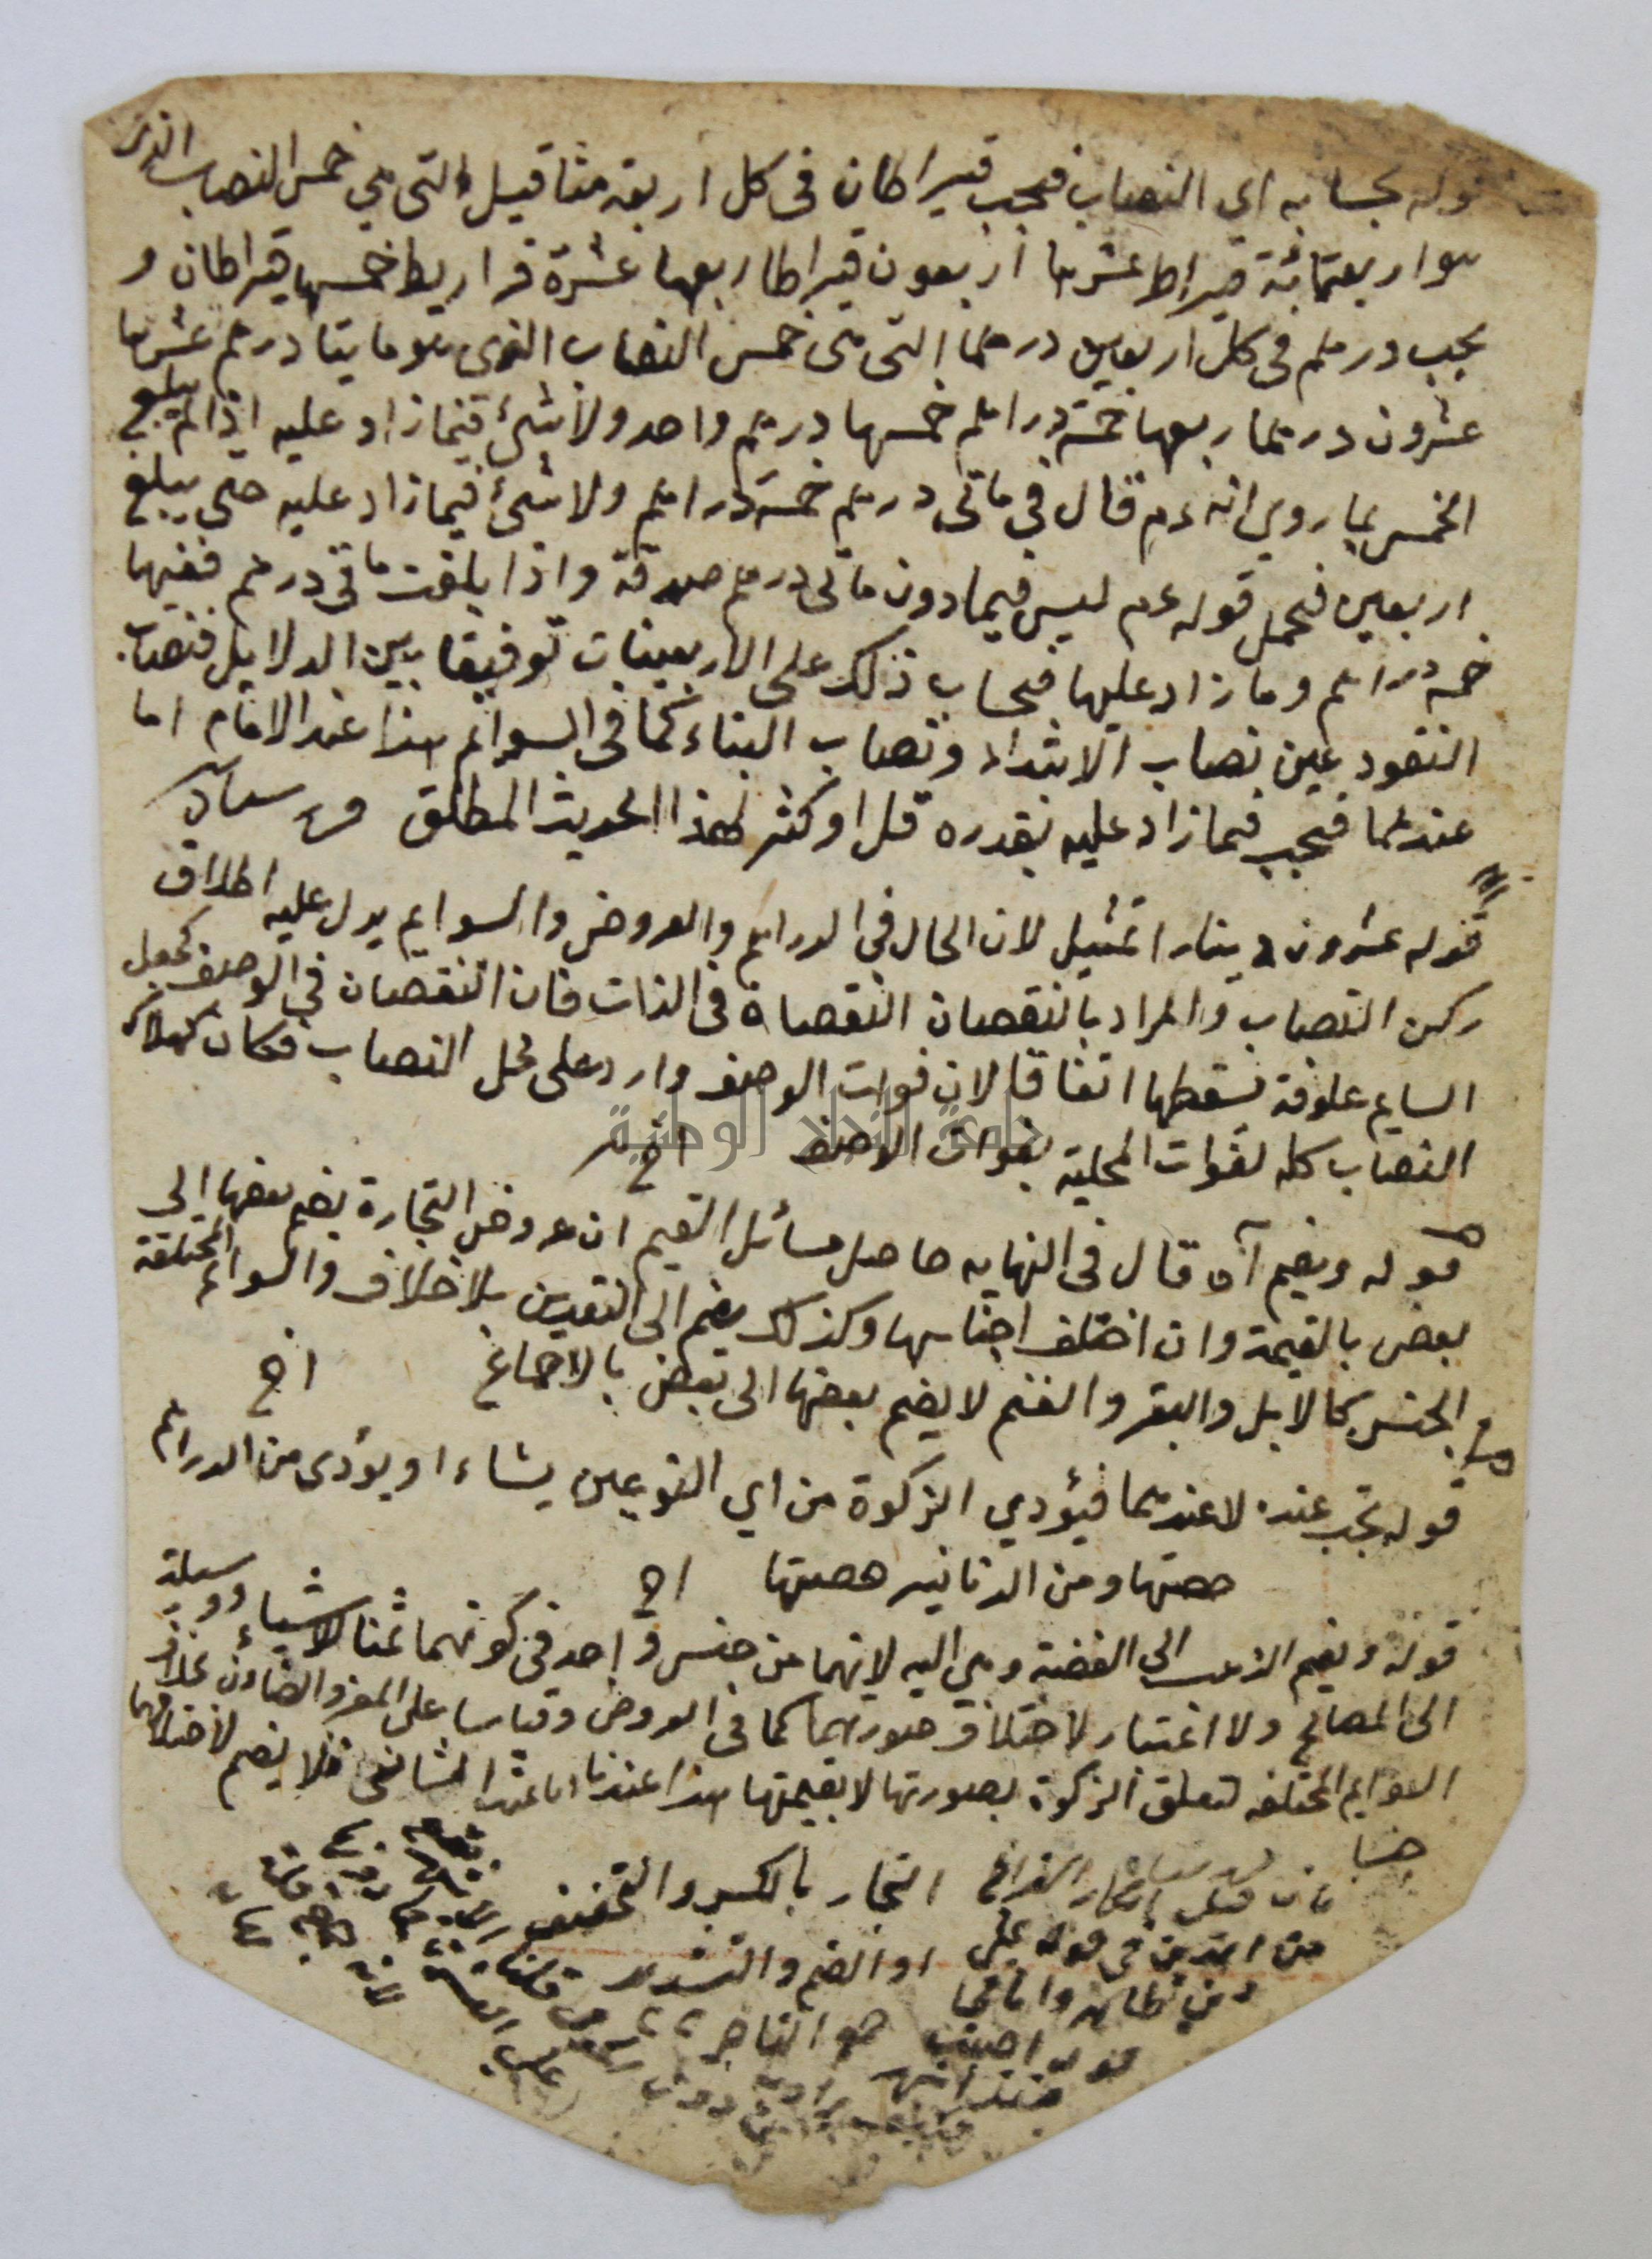 قوله بحسابه اي النصاب فيجب قيراطان في كل اربعة مثاقيل التي هي خمس النصاب الذي
هو اربعمائة قيراط عشرها اربعون قيراطا ربعها عشرة قراريط خمسها قيراطان و
يجب درهم في كل اربعين درهما التي هي خمس النصاب الذي هو مايتا درهم عشرها
عشرون درهما ربعها خمسة دراهم خمسها درهم واحد ولا شئ فيما زاد عليه اذا لم يبلغ
الخمس لما روي انه عم قال في مأتى درهم خمسة دراهم ولا شئ فيما زاد عليه حتى يبلغ
اربعين فيحمل قوله عم ليس فيما دون مأتى درهم صدقة واذا بلغت مأتى درهم ففيها
خمسة دراهم وما زاد عليها فبحساب ذلك على الاربعينات توفيقا بين الدلايل فنصاب
النقود عين نصاب الابتداء ونصاب البناء كما في السوائم هذا عند الامام اما
عندهما فيجب فيما زاد عليه بقدره قل او كثر لهذا الحديث المطلق
قوله عشرون دينارا تمثيل لان الحال في الدراهم والعروض والسوايم يدل عليه اطلاق
ركن النصاب والمراد بالنقصان النقصان في الذات فان النقصان في الوصف كجعل
السايم علوفة يسقطها اتفاقا لان فوات الوصف وارد على محل النصاب فكان كهلاك
النصاب كله لفوات المحلية بفوات الوصف اخ
جامعة النجاح الوطنية
قوله ويضم آه قال في النهايه حاصل مسائل القيم ان عروض التجارة يضم بعضها الى
بعض بالقيمة وان اختلف اجناسها وكذلك يضم الى النقدين بلا خلاف والسوائم المختلفة
الجنس كالابل والبقر والغنم لا يضم بعضها الى بعض بالاجماع اخ
قوله يجب عنده لا عندهما فيؤدي الزكوة من اي النوعين يشاء او يؤدى من الدراهم
حصتها ومن الدنانير حصتها اخ
قوله ويضم الذهب الى الفضة وهي اليه لانهما من جنس واحد في كونهما ثمنا للاشياء ووسيلة
الى المصالح ولا اعتبار لاختلاف صورتهما كما في العروض وقياسا على المعز والضأن بخلاف
السوايم المختلفه لتعلق الزكوة بصورتها لا بقيمتها هذا عندنا اما عند الشافعى فلا يضم لاختلافهما
جنسا
التجار بالكسر والتخفيف
او الضم والتشديد